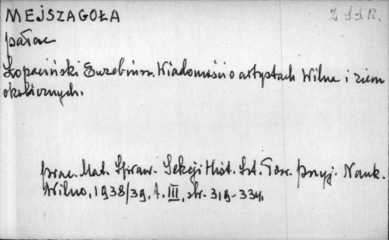 MEJSZAGOŁA
pałac
Łopaciński Euzebiusz. Wiadomości o artystach Wilna i ziem
okolicznych.
Prac. Mat. Spraw. Sekcji Hist. Szt. Tow. Przyj. Nauk.
Wilno, 1938/39, t. III, str. 319-334.